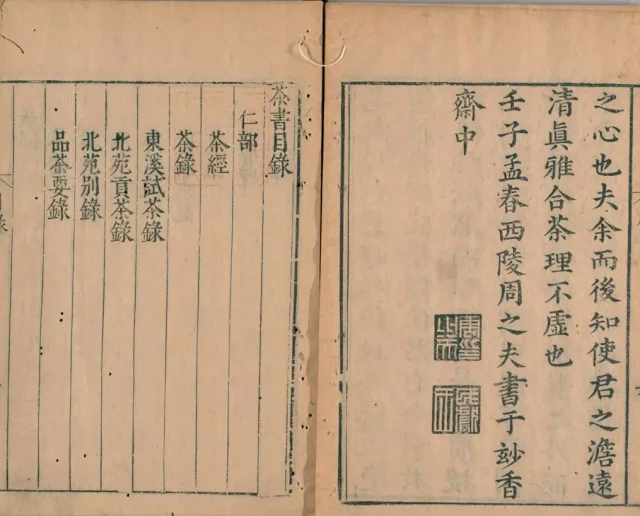 之心也夫余而後知使君之澹遠
清眞雅合茶理不虛也
壬子孟春西陵周之夫書于玅香
齋中
茶書目錄
仁部
茶經
茶錄
東溪試茶錄
北苑貢茶錄
北苑別錄
品茶要錄